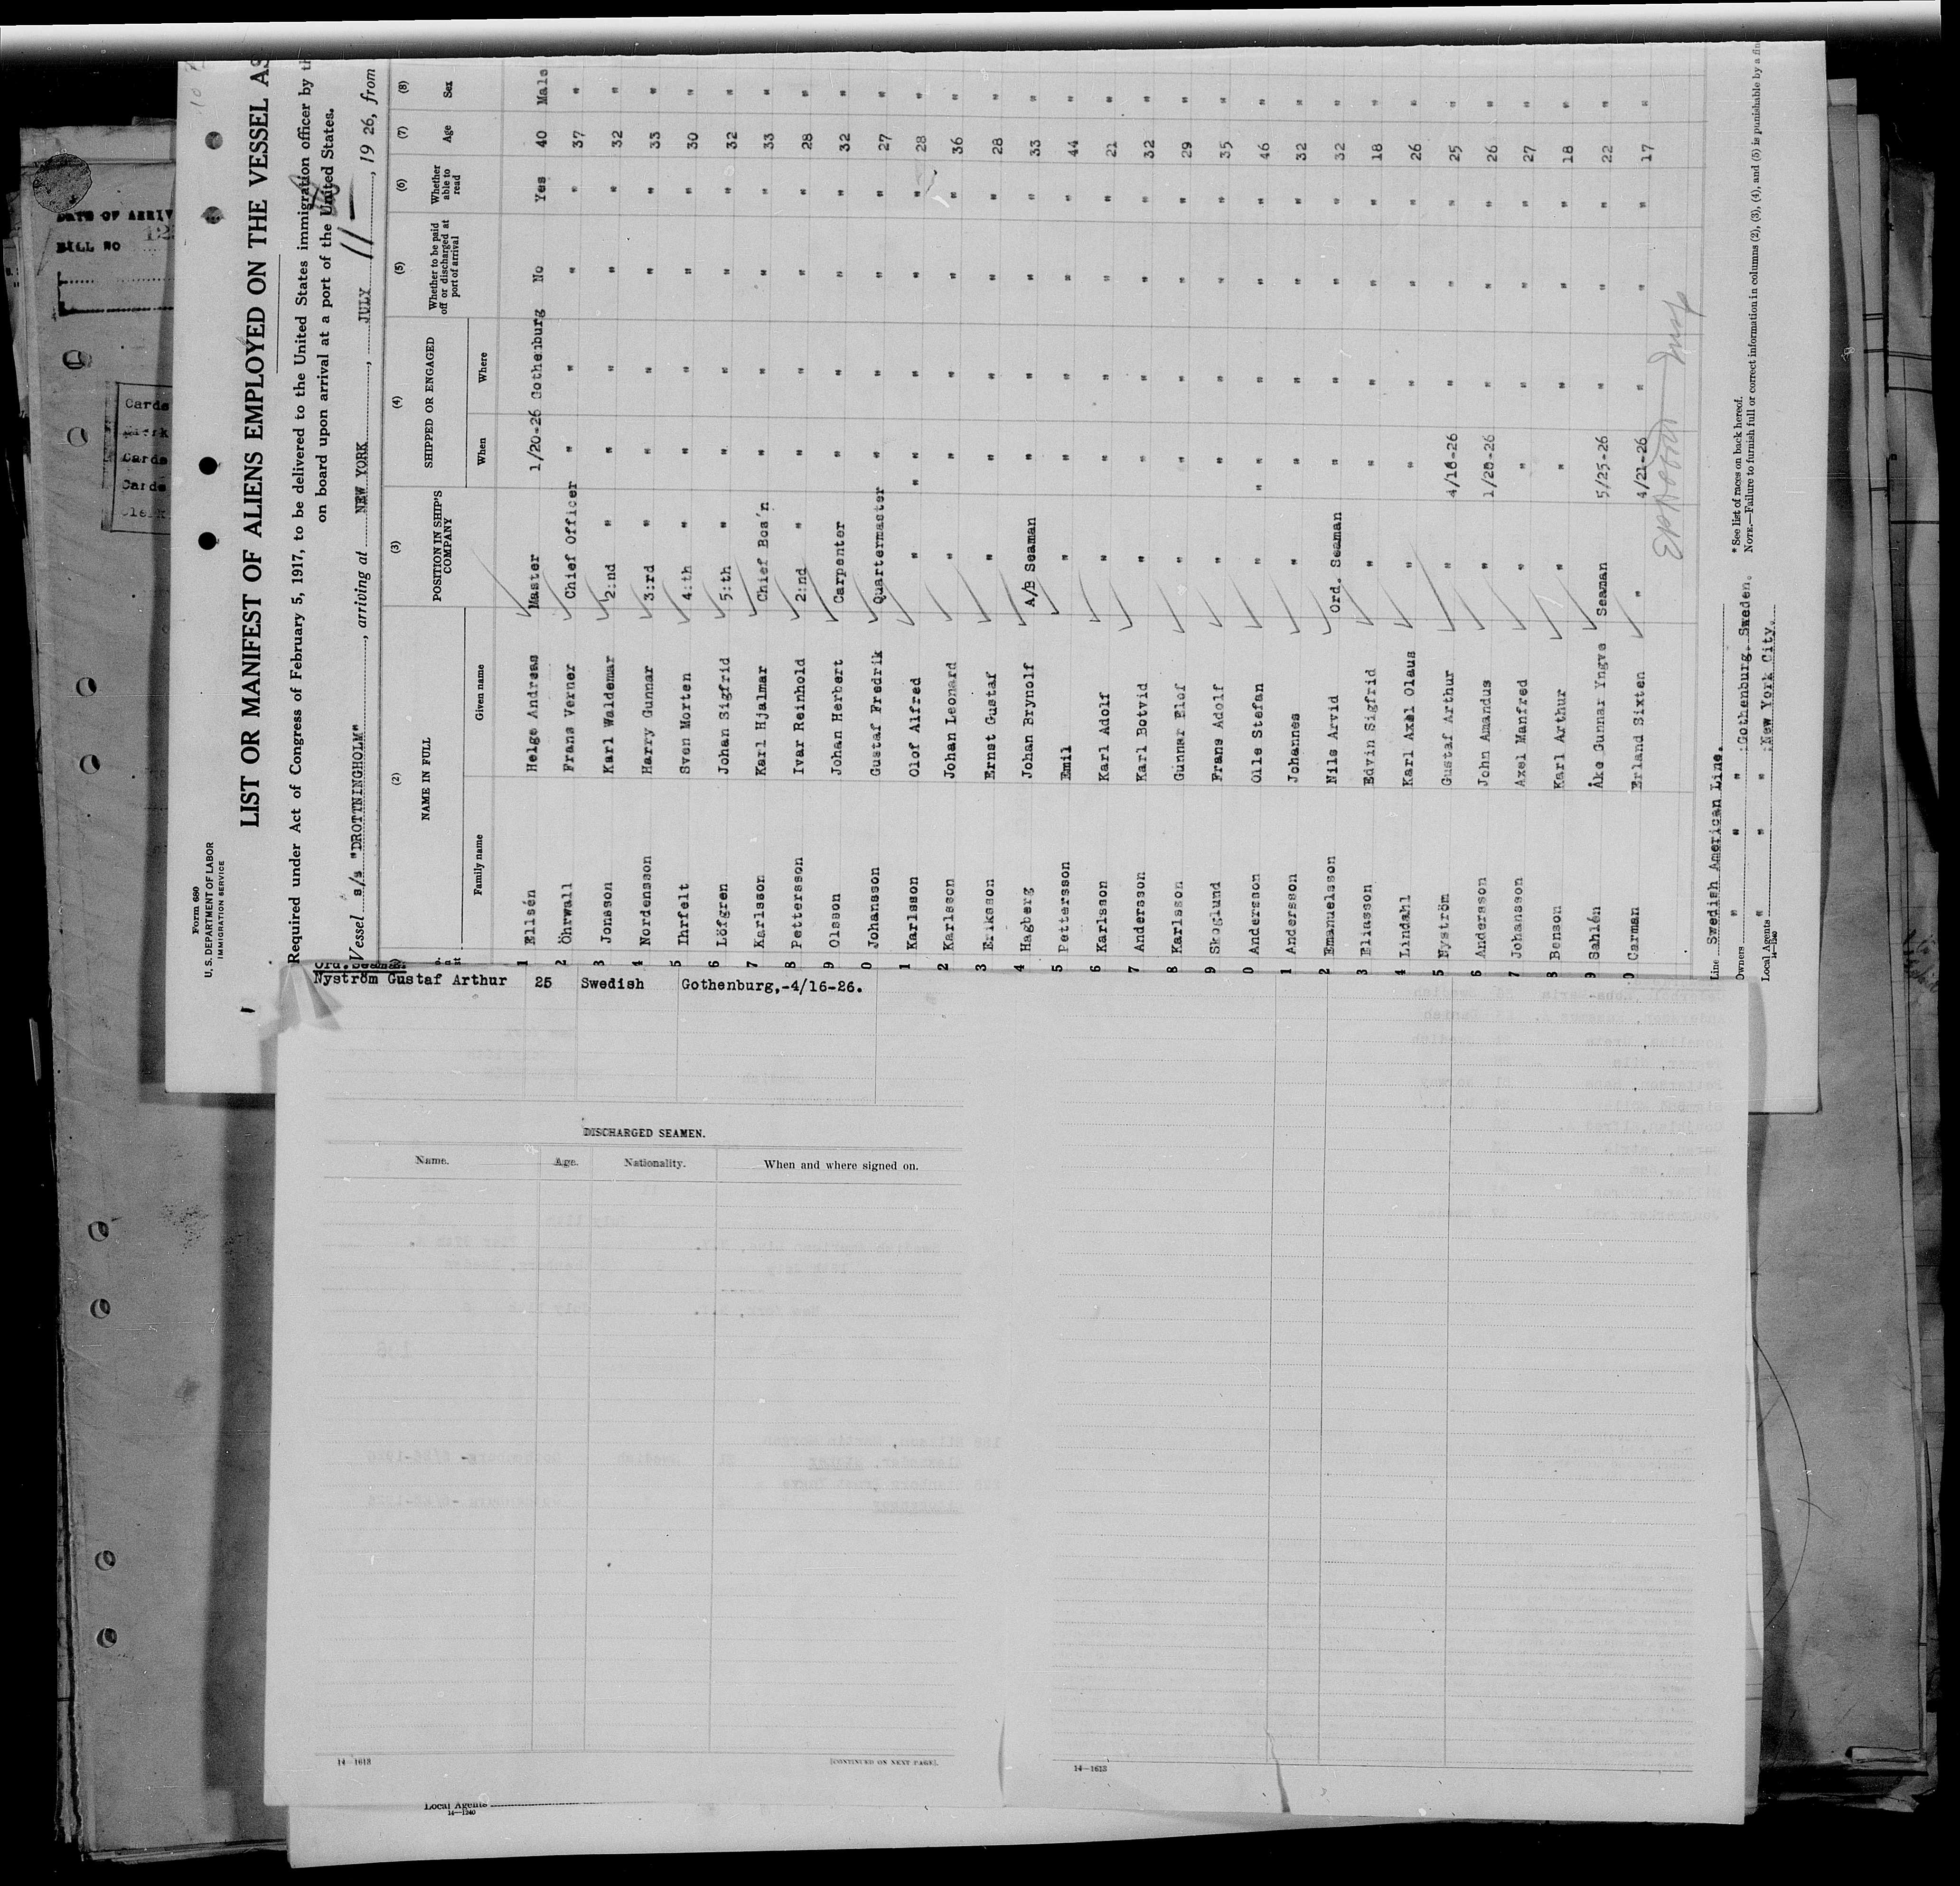 Form 680
U. S. DEPARTMENT OF LABOR
IMMIGRATION SERVICE
LIST OR MANIFEST OF ALIENS EMPLOYED ON THE VESSEL AS
Required under Act of Congress of February 5, 1917, to be delivered to the United States immigration officer by th
on board upon arrival at a port of the United States.
Vessel s/s "DROTTNINGHOLM", arriving at NEW YORK, JULY 11, 19 26, from
(2) (3) (4) (5) (6) (7) (8)
NAME IN FULL POSITION IN SHIP'S COMPANY SHIPPED OR ENGAGED Whether to be paid off or discharged at port of arrival Whether able to read Age Sex
Family name Given name When Where
1 Ellsén Helge Andreas Master 1/20-26 Gothenburg No Yes 40 Male
2 Öhrwall Frans Verner Chief Officer " " " " 37 "
3 Jonsson Karl Waldemar 2:nd " " " " " 32 "
4 Nordensson Harry Gunnar 3:rd " " " " " 33 "
5 Ihrfelt Sven Morten 4:th " " " " " 30 "
6 Löfgren Johan Sigfrid 5:th " " " " " 32 "
7 Karlsson Karl Hjalmar Chief Bos'n " " " " 33 "
8 Pettersson Ivar Reinhold 2:nd " " " " " 28 "
9 Olsson Johan Herbert Carpenter " " " " 32 "
0 Johansson Gustaf Fredrik Quartermaster " " " " 27 "
1 Karlsson Olof Alfred " " " " " " 28 "
2 Karlsson Johan Leonard " " " " " 36 "
3 Eriksson Ernst Gustaf " " " " " 28 "
4 Hagberg Johan Brynolf A/B Seaman " " " " 33 "
5 Pettersson Emil " " " " " 44 "
6 Karlsson Karl Adolf " " " " " 21 "
7 Andersson Karl Botvid " " " " " 32 "
8 Karlsson Gunnar Elof " " " " " 29 "
9 Skoglund Frans Adolf " " " " " 35 "
0 Andersson Olle Stefan " " " " " " 46 "
1 Andersson Johannes " " " " " 32 "
2 Emanuelsson Nils Arvid Ord. Seaman " " " " 32 "
3 Eliasson Edvin Sigfrid " " " " " 18 "
4 Lindahl Karl Axel Olaus " " " " " 26 "
5 Nyström Gustaf Arthur " 4/16-26 " " " 25 "
6 Andersson John Amandus " 1/20-26 " " " 26 "
7 Johansson Axel Manfred " " " " " 27 "
8 Benson Karl Arthur " " " " " 18 "
9 Sahlén Åke Gunnar Yngve Seaman 5/25-26 " " " 22 "
0 Carman Erland Sixten " 4/21-26 " " " 17 "
Line Swedish American Line.
Owners " " " :Gothenburg. Sweden.
Local Agents " " " :New York City.
14—1240
* See list of races on back hereof.
NOTE.—Failure to furnish full or correct information in columns (2), (3), (4), and (5) is punishable by a fin
DATE OF ARRIV
BILL NO
Cards
Clerk
Cards
Cards
Clerk
Ord. Seaman
Nyström Gustaf Arthur 25 Swedish Gothenburg,-4/16-26.
DISCHARGED SEAMEN.
Name. Age. Nationality. When and where signed on.
14—1613
[CONTINUED ON NEXT PAGE].
14—1613
Local Agents
14—1240